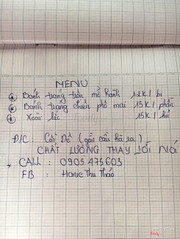 MENU
Bánh tráng trộn mỡ hành 12K / bị
Bánh tráng chiên phô mai 15K / phần
Xoài lắc 15K / hủ
Đ/C: Cái Dê (gần cầu bà ra)
CHẤT LƯỢNG THAY LỜI NÓI
CALL : 0905 475 603
FB : Hoac Thu Thảo